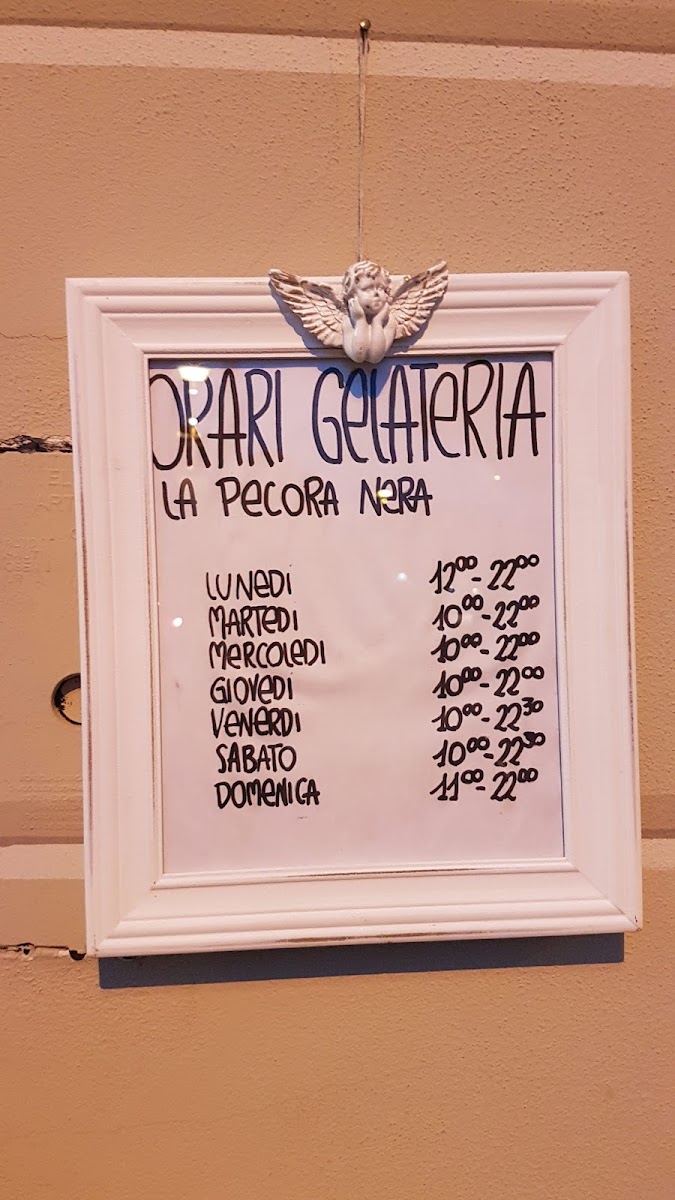 ORARI GELATERIA
LA PECORA NERA
LUNEDì 12⁰⁰-22⁰⁰
MARTEDì 10⁰⁰-22⁰⁰
MERCOLEDì 10⁰⁰-22⁰⁰
GIOVEDì 10⁰⁰-22⁰⁰
VENERDì 10⁰⁰-22³⁰
SABATO 10⁰⁰-22³⁰
DOMENICA 11⁰⁰-22⁰⁰